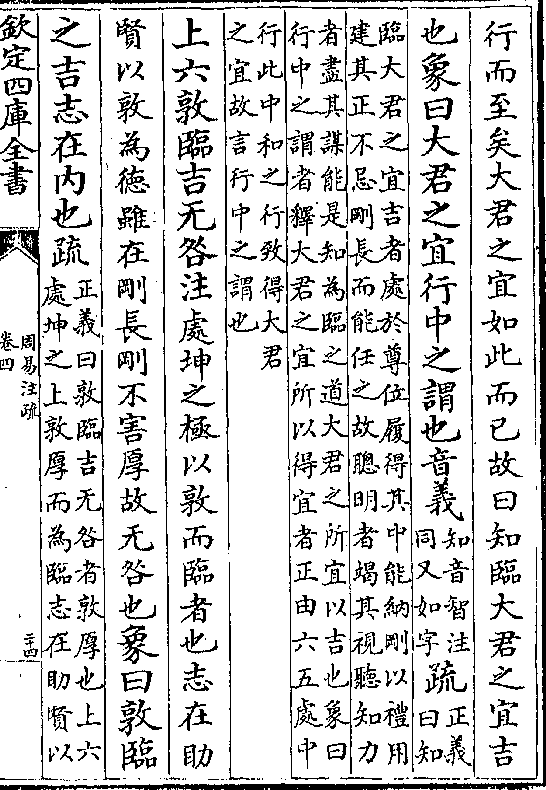 行而至矣大君之宜如此而已故曰知臨大君之宜吉
也象曰大君之宜行中之謂也音義
知音智注
同又如字
疏
正義
曰知
臨大君之宜吉者處於尊位履得其中能納剛以禮用
建其正不忌剛長而能任之故聰明者竭其視聽知力
者盡其謀能是知為臨之道大君之所宜以吉也象曰
行中之謂者釋大君之宜所以得宜者正由六五處中
行此中和之行致得大君
之宜故言行中之謂也
上六敦臨吉无咎注處坤之極以敦而臨者也志在助
賢以敦為德雖在剛長剛不害厚故无咎也象曰敦臨
之吉志在内也疏
正義曰敦臨吉无咎者敦厚也上六
處坤之上敦厚而為臨志在助賢以
欽定四庫全書
周易注疏
卷四